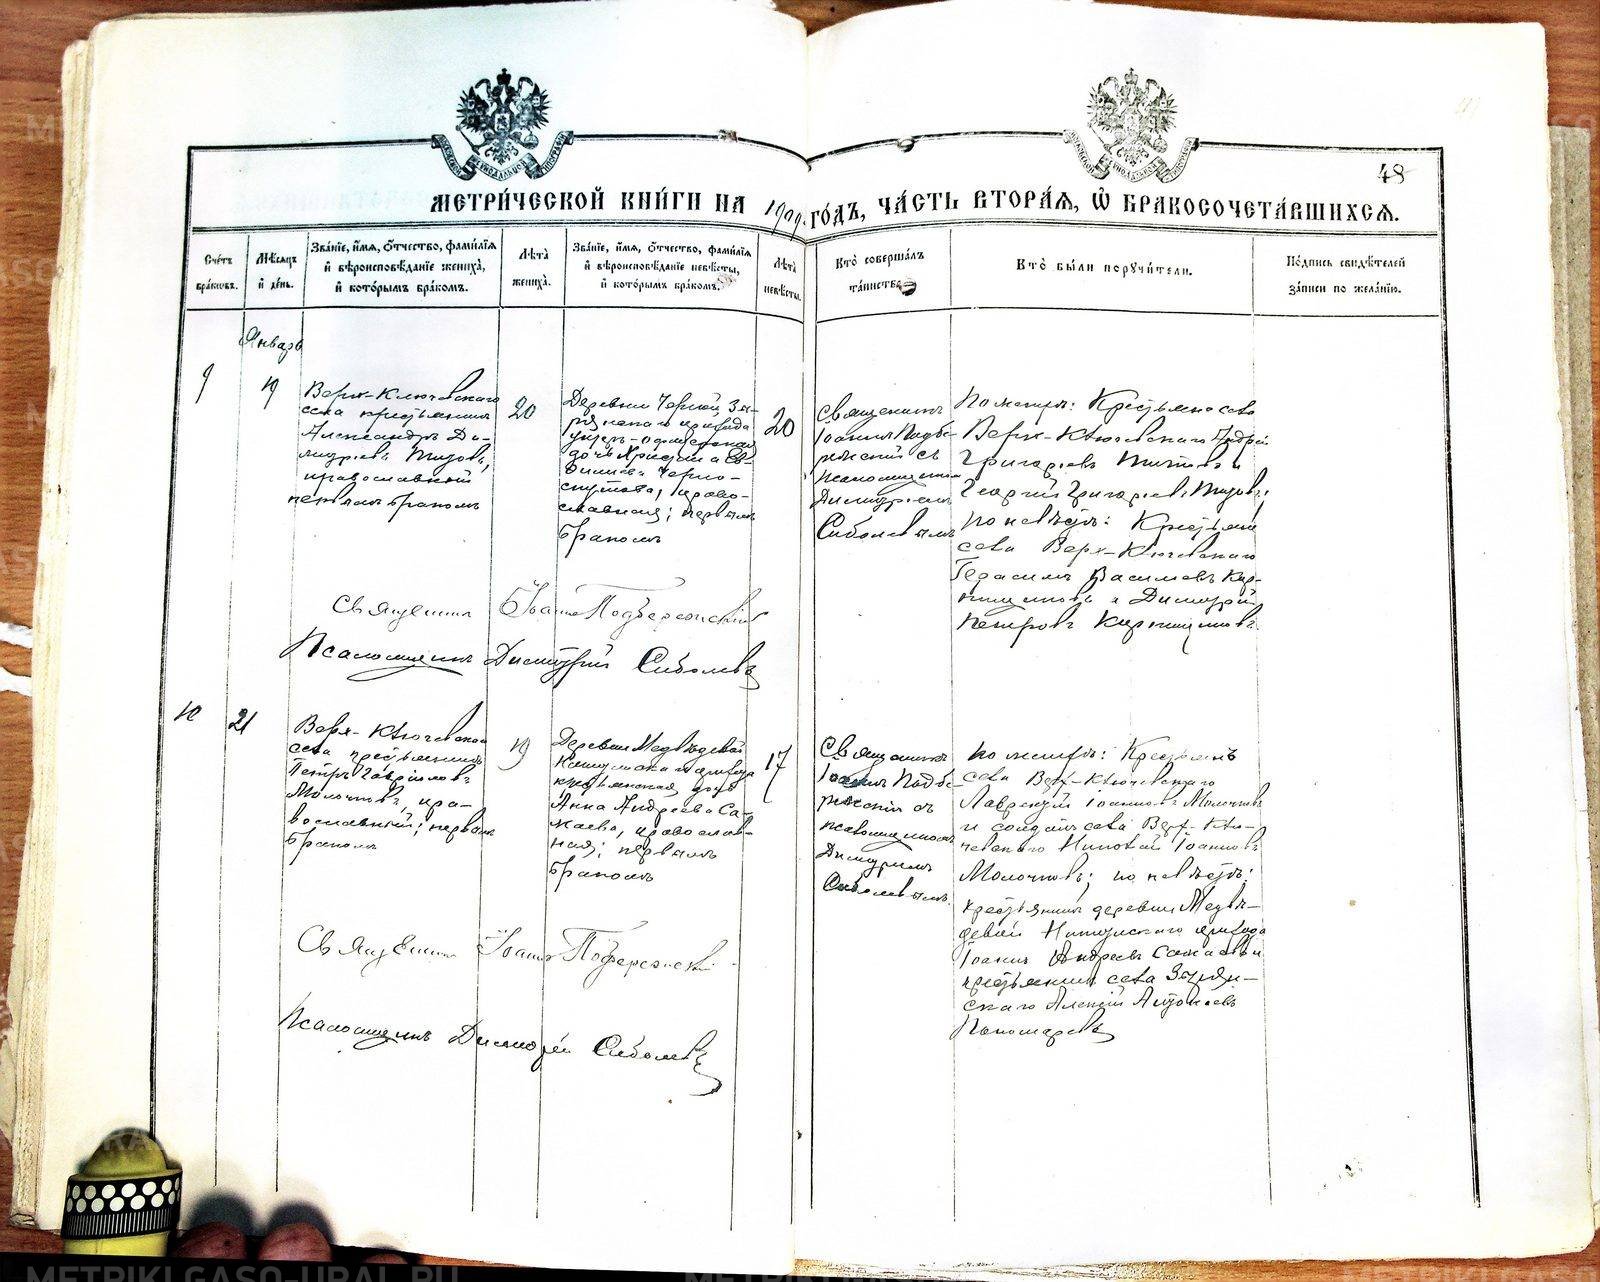 48
МЕТРИ́ЧЕСКОЙ КНИ́ГИ НА 1909 ГО́ДЪ, ЧА́СТЬ ВТОРА́Ѧ, Ѡ҆ БРАКОСОЧЕТА́ВШИХСѦ.
Счетъ браковъ.
Мѣсяцъ и день.
Званіе, имя, отчество, фамилія
и вѣроисповѣданіе жениха,
и которымъ бракомъ.
Лѣта
жениха.
Званіе, имя, отчество, фамилія
и вѣроисповѣданіе невѣсты,
и которымъ бракомъ.
Лѣта
невѣсты.
Кто совершалъ
таинство.
Кто были поручители.
Подпись свидѣтелей
записи по желанію.
Январь
9
19
Верх-Ключевскаго
села крестьянинъ
Александръ Ди-
митріевъ Титовъ,
православный
первымъ бракомъ
20
Деревни Черной, Зы-
рянскаго прихода
дочь Христина
православная; первымъ
бракомъ
20
Священникъ
Іоаннъ Подбе-
резскій съ
псаломщикомъ
Димитріемъ
Соболевымъ
По женихѣ: Крестьяне села
Верх-Ключевскаго Андрей
Григорьевъ Титовъ и
Георгій Григорьевъ Титовъ;
по невѣстѣ: Крестьяне
села Верх-Ключевскаго
Герасимъ Васильевъ Кир-
пищиковъ и Димитрій
Петровъ Кирпищиковъ
Священникъ Іоаннъ Подберезскій
Псаломщикъ Димитрій Соболевъ
10
21
Верх-Ключевскаго
села крестьянинъ
Петръ Гавриловъ
Молочковъ, пра-
вославный; первымъ
бракомъ
19
Деревни Медвѣдевой
прихода
крестьянская дочь
Анна Андреева Са-
жаева, православ-
ная; первымъ
бракомъ
17
Священникъ
Іоаннъ Подбе-
резскій съ
псаломщикомъ
Димитріемъ
Соболевымъ.
по женихѣ: Крестьянъ
села Верх-Ключевскаго
Лаврентій Іоанновъ Молочковъ
и солдатъ села Верх-Клю-
чевскаго Іоанновъ
Молочковъ; по невѣстѣ:
крестьянинъ деревни Медвѣ-
девой прихода
Іоаннъ Андреевъ Сажаевъ и
крестьянинъ села Зырян-
скаго Алексѣй
Пономаревъ
Священникъ Іоаннъ Подберезскій
Псаломщикъ Димитрій Соболевъ
METRIKI.GASO-URAL.RU